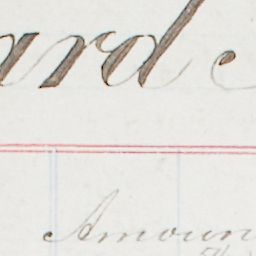 ard
Amoun